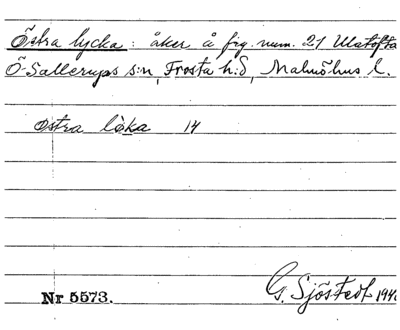 Östra lycka : åker å fig. num. 21 Ulatofta
Ö. Sallerups s:n, Frosta h:d, Malmöhus l.
östra lòka 14
Nr 5573.
G. Sjöstedt